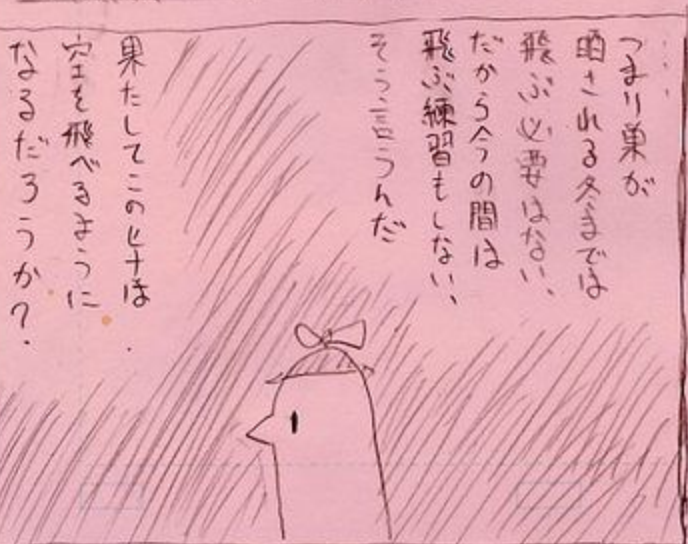 …つまり巣が
晒される冬までは
飛ぶ必要はない、
だから今の間は
飛ぶ練習もしない、
そう言うんだ
果たしてこのヒナは
空を飛べるように
なるだろうか?